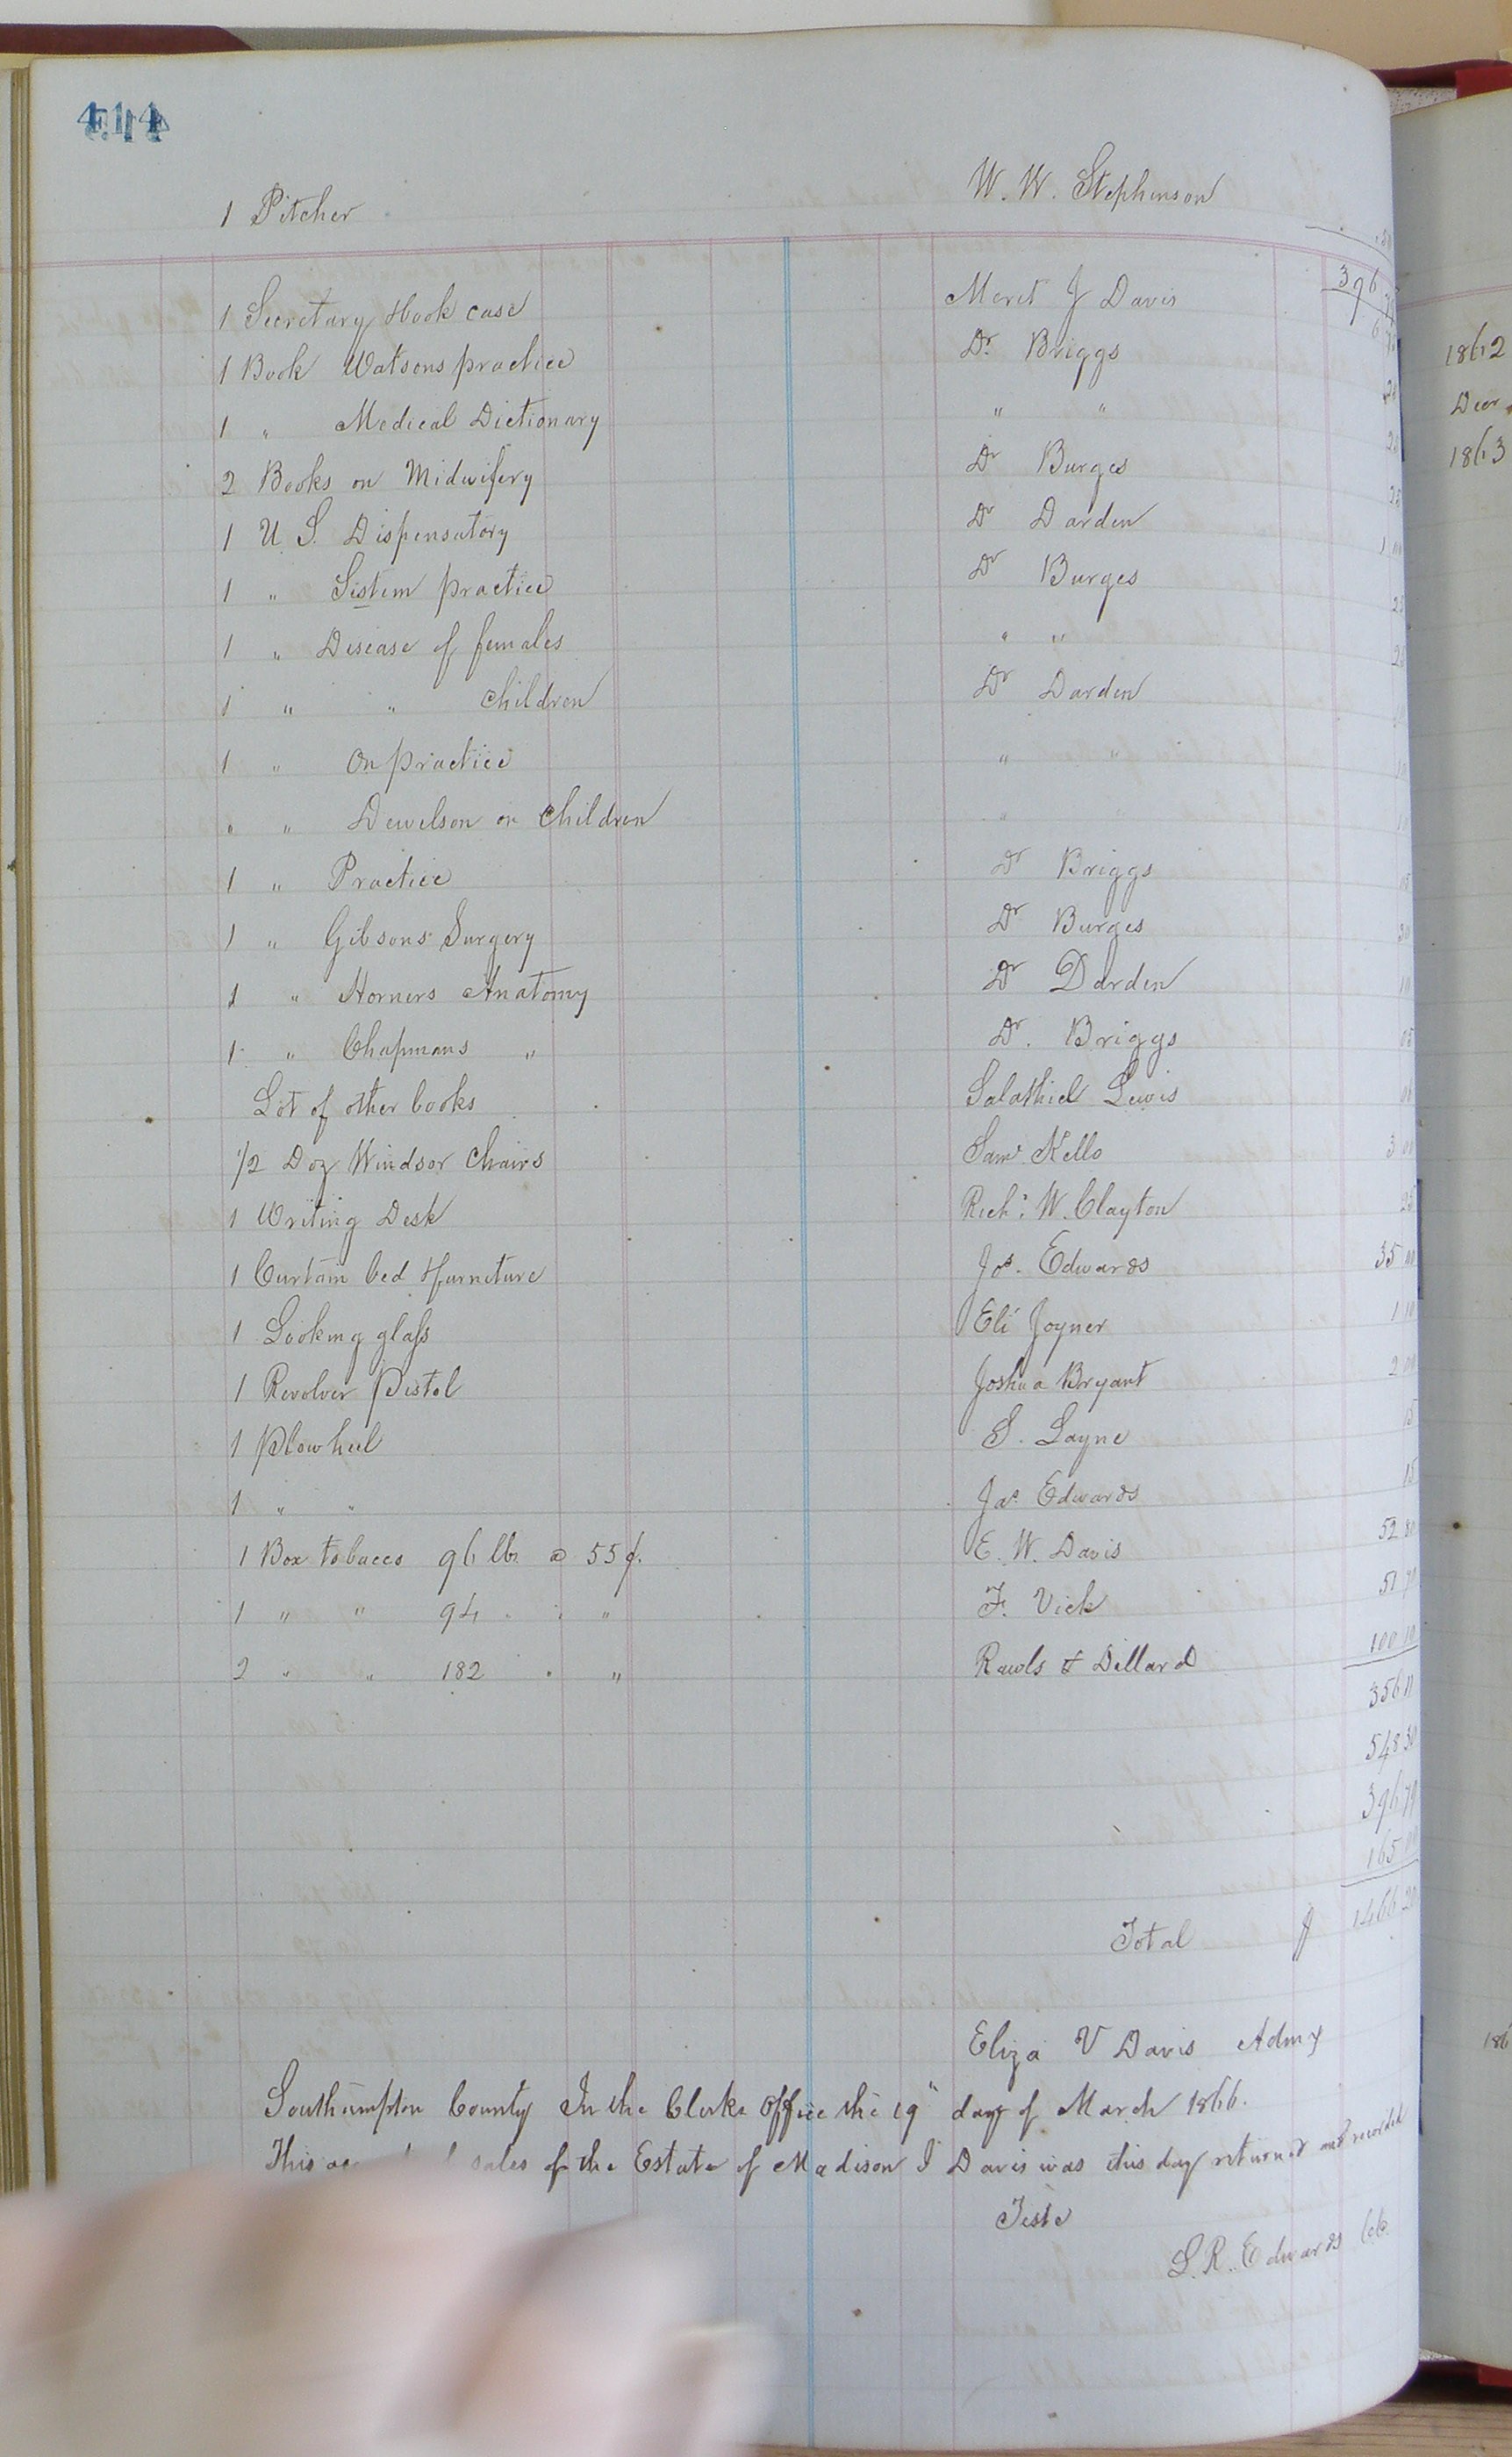 414
1 Pitcher W. W. Stephenson .50
396 79
1 Secretary & book case Meret J Davis
1 Book Watsons practice Dr. Briggs
1 " Medical Dictionary " "
2 Books on Midwifery Dr Burges
1 U. S. Dispensatory Dr Darden
1 " Sistem practice Dr Burges
1 " Disease of females " "
1 " " children Dr Darden
1 " On practice " "
" " Dewelson on Children "
1 " Practice Dr Briggs
1 " Gibsons Surgery Dr Burges
1 " Horners Anatomy Dr Darden
1 " Chapmans " Dr. Briggs
Lot of other books Salathiel Lewis
1/2 Doz Windsor Chairs Saml Kello 3 00
1 Writing Desk Richd. W. Clayton 25
1 Curtain bed & furniture Jas. Edwards 35 00
1 Looking glass Eli Joyner 1 10
1 Revolver Pistol Joshua Bryant 2 00
1 Plow heel S. Layne 15
1 " " Jas. Edwards 15
1 Box tobacco 96 lbs @ 55 ¢. E. W. Davis 52 80
1 " " 94 " " " F. Vick 51 70
2 " " 182 " " Rawls & Dillard 100 10
356 11
548 30
396 79
165 00
Total $ 1466 20
Eliza V Davis Admx
Southampton County In the Clerks Office the 19" day of March 1866.
This sales of the Estate of Madison J Davis was this day returned and recorded
Teste
L. R. Edwards
1862
Decr
1863
186